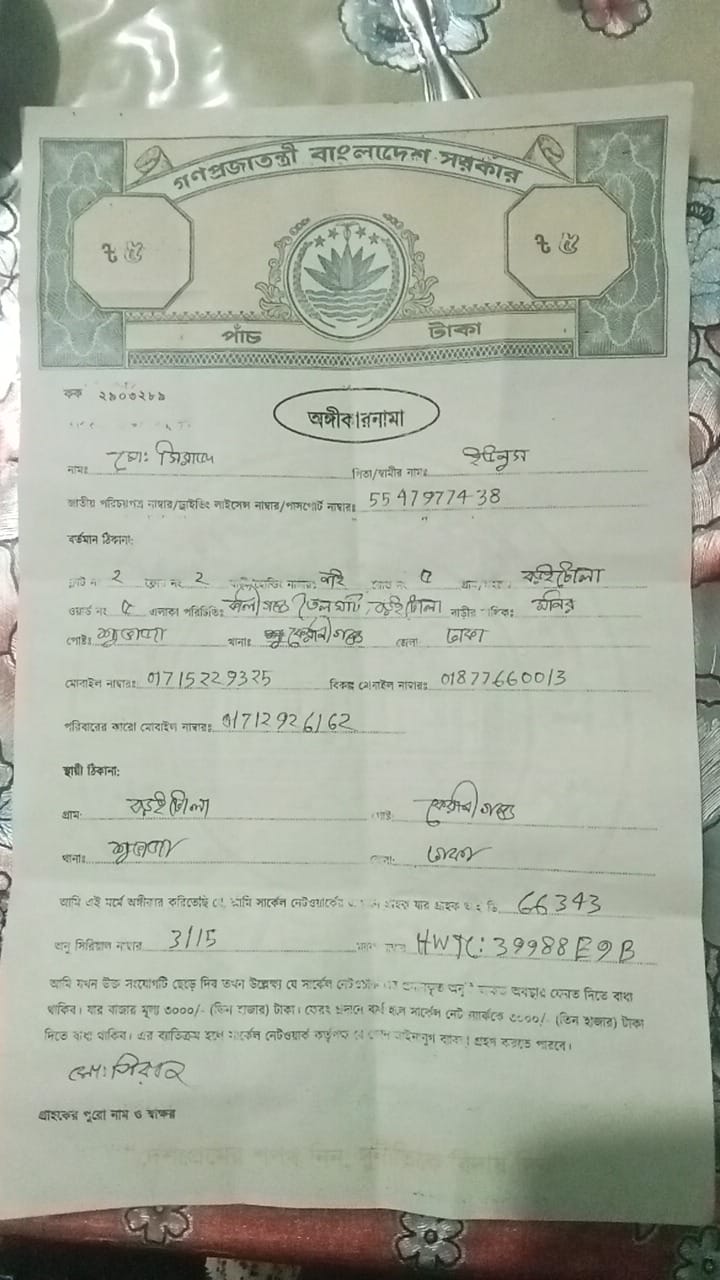 গণপ্রজাতন্ত্রী বাংলাদেশ সরকার
৳ ৫ ৳ ৫
পাঁচ টাকা
কক ২৯০৩২৮৯
অঙ্গীকারনামা
নামঃ মোঃ সিরাজ পিতা/স্বামীর নামঃ ইউনুস
জাতীয় পরিচয়পত্র নাম্বার/ড্রাইভিং লাইসেন্স নাম্বার/পাসপোর্ট নাম্বারঃ 5547977438
বর্তমান ঠিকানা:
২ ২ ৫ বড়ইটোলা
ওয়ার্ড নং ৫ এলাকা পরিচিতিঃ কালীগঞ্জ তেলঘাট বড়ইটোলা বাড়ীর মালিকঃ মনির
পোষ্টঃ শুভাঢ্যা থানাঃ কেরানীগঞ্জ জেলা ঢাকা
মোবাইল নাম্বারঃ 01715229325 বিকল্প মোবাইল নাম্বারঃ 01877660013
পরিবারের কারো মোবাইল নাম্বারঃ 01712926162
স্থায়ী ঠিকানা:
গ্রামঃ বড়ইটোলা কেরানীগঞ্জ
থানাঃ শুভাঢ্যা ঢাকা
আমি এই মর্মে অঙ্গীকার করিতেছি যে, আমি সার্কেল নেটওয়ার্কের গ্রাহক যার গ্রাহক 66343
অনু সিরিয়াল নাম্বার 3/15 HWTC: 39988E9B
আমি যখন উক্ত সংযোগটি ছেড়ে দিব তখন উল্লেখ্য যে সার্কেল অবস্থায় ফেরত দিতে বাধ্য
থাকিব। যার বাজার মূল্য ৩০০০/- (তিন হাজার) টাকা। ফেরৎ প্রদানে ব্যর্থ হলে সার্কেল নেট ৩০০০/- (তিন হাজার) টাকা
দিতে বাধ্য থাকিব। এর ব্যতিক্রম হলে সার্কেল নেটওয়ার্ক কর্তৃপক্ষ গ্রহন করতে পারবে।
মোঃ সিরাজ
গ্রাহকের পুরো নাম ও স্বাক্ষর